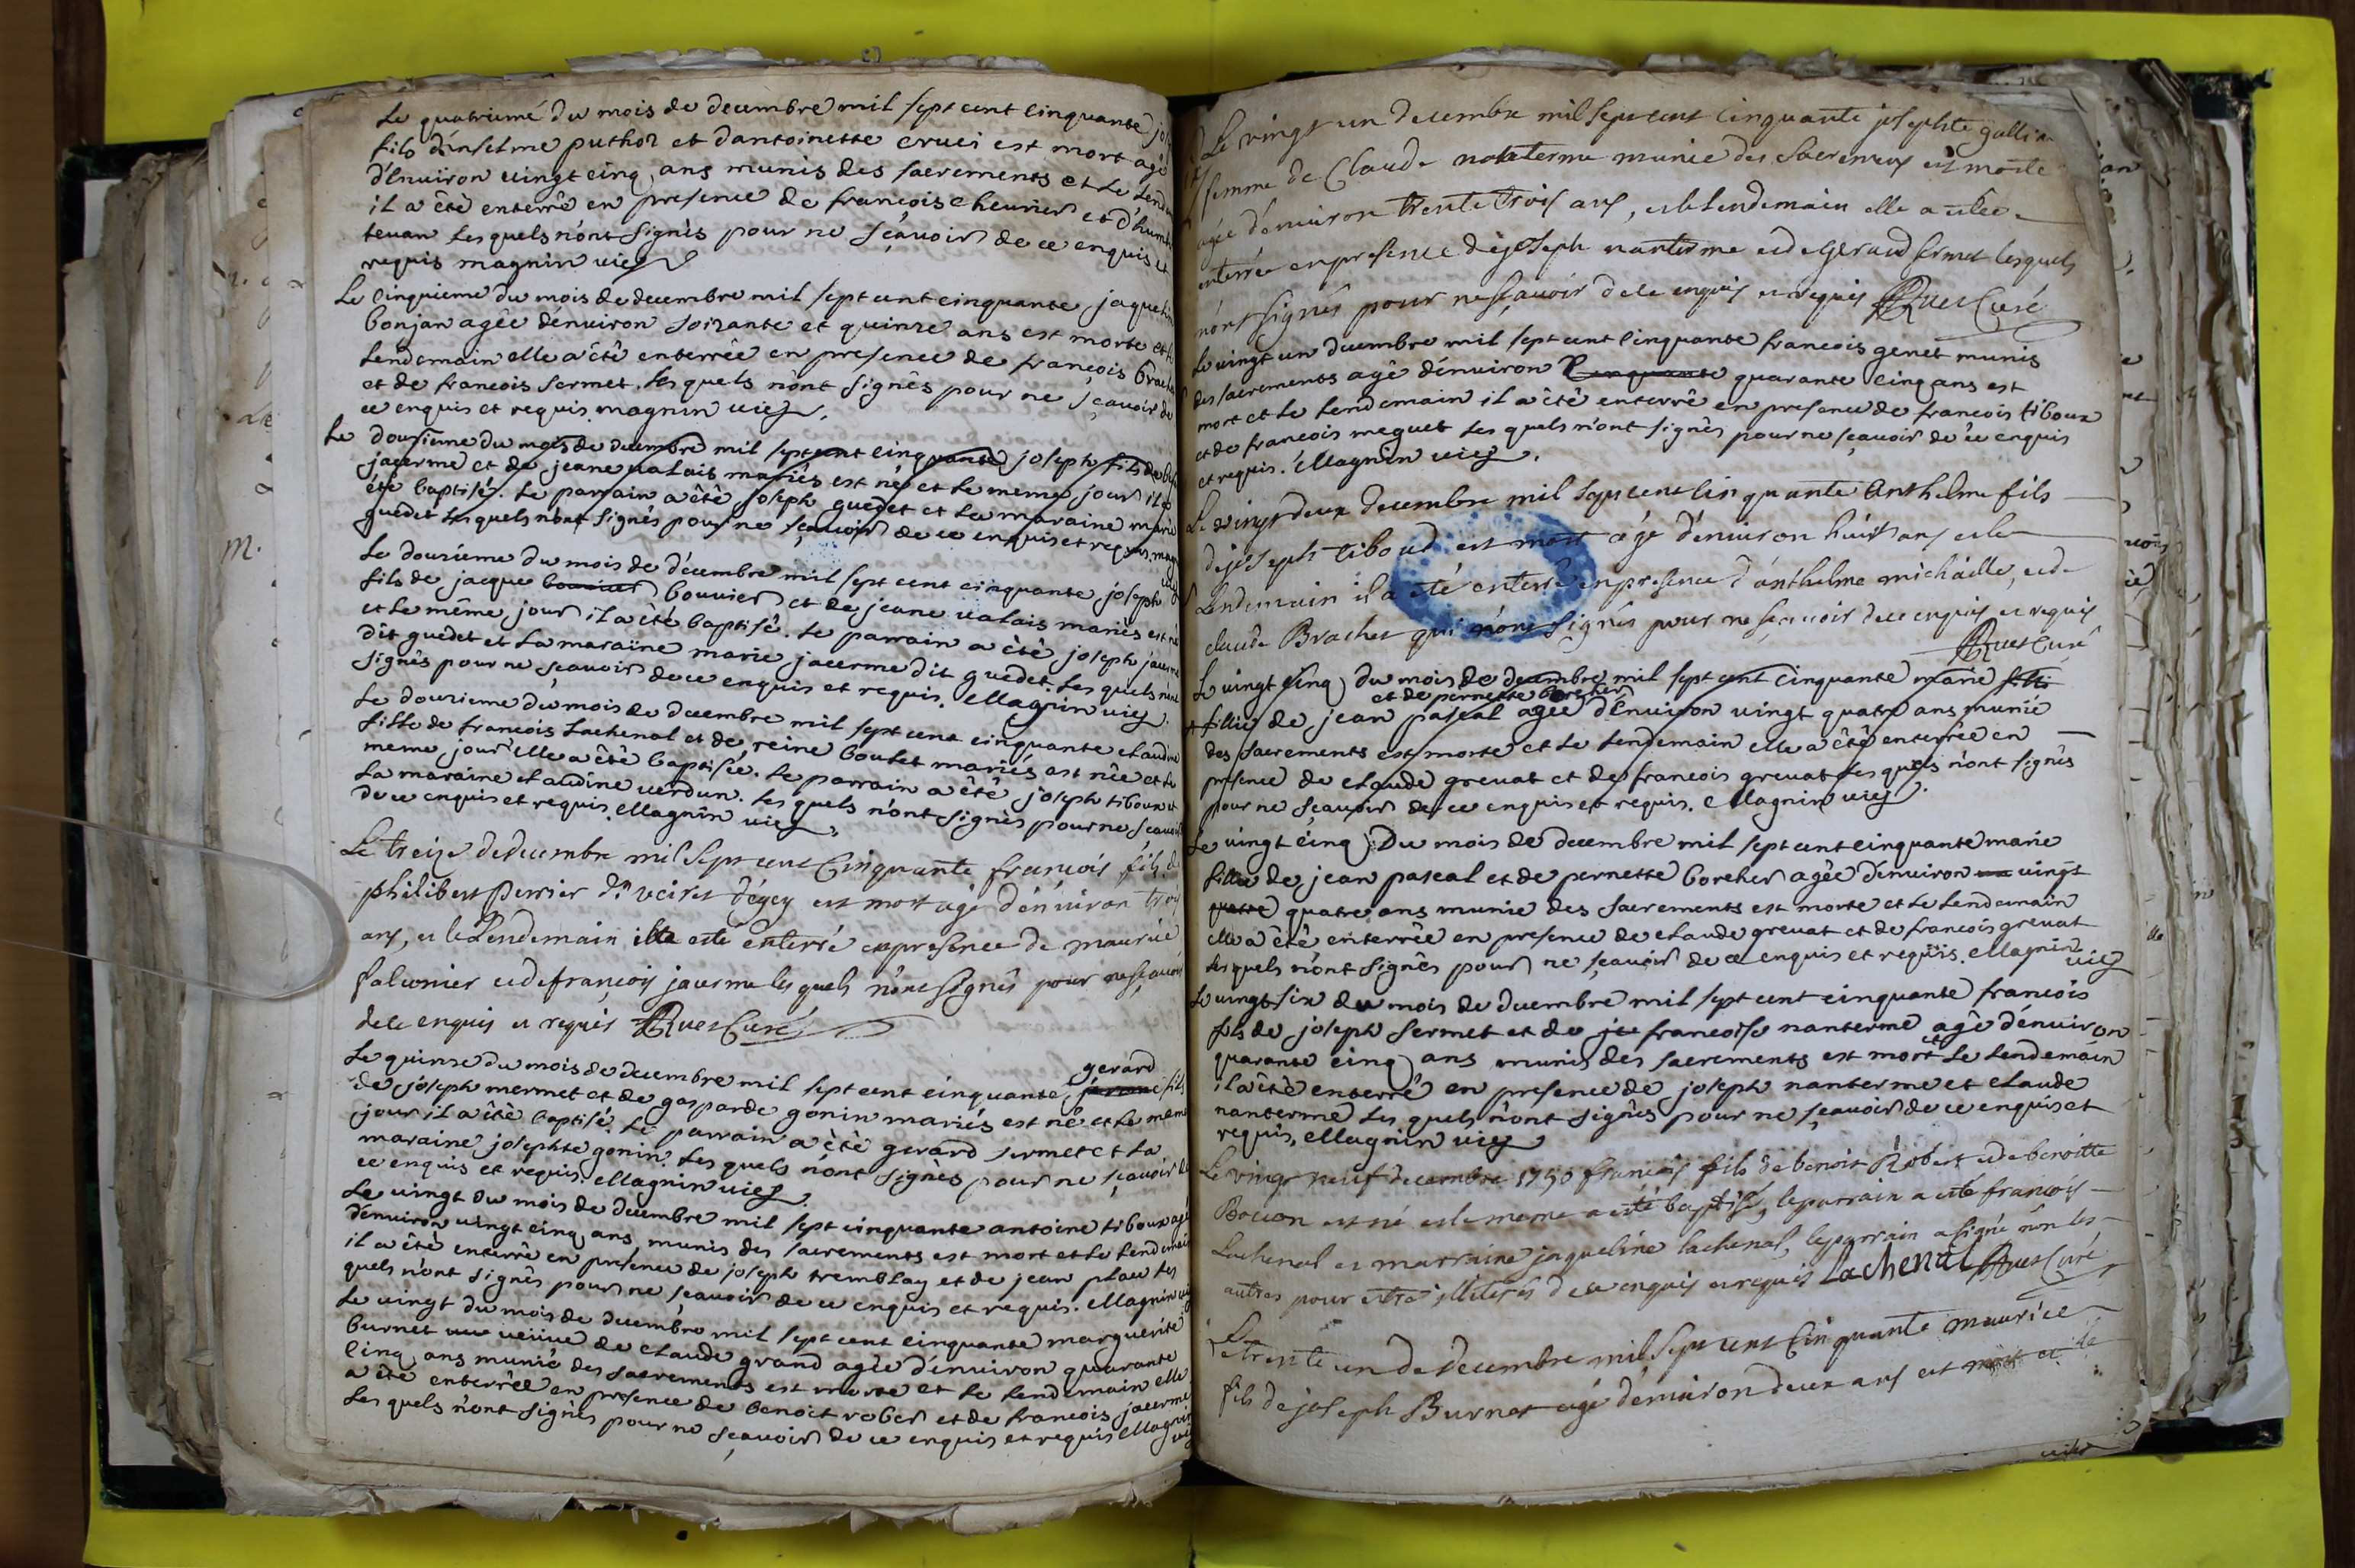 Le quatrieme du mois de decembre mil sept cent cinquante
fils d'enselme puthoz et d'antoinette cruci est mort agé
d'énuiron uingt cinq ans munis des sacrements et le lend
il a èté enterré en presence de francois cheurier et d'humb
teuan les quels n'ont signés pour ne sçauoir de ce enquis et
requis magnin uic
Le cinquieme du mois de decembre mil sept cent cinquante, jaqueli
bonjan agée d'énuiron soizante et quinze ans est morte et l
lendemain elle a èté enterrée en presence de francois brach
et de francois sermet. les quels n'ont signés pour ne sçauoir de
ce enquis et requis magnin uic
Le douzieme du mois de decembre mil sept cent cinquante joseph fils de
jacerme et de jeane ualais mariés est né et le meme jour il a
été baptisé. le parrain a èté joseph guedet et la maraine marie
guedet les quels n'ont signés pour ne sçauoir de ce enquis et requis. magn
Le douzieme du mois de décembre mil sept cent cinquante, joseph
fils de jacque bouuier bouuier et de jeane ualais mariés est né
et le même jour il a èté baptisé. le parrain a èté joseph jacerme
dit guedet et la maraine marie jacerme dit guedet. les quels n'ont
signés pour ne sçauoir de ce enquis et requis. Magnin uic
Le douzieme du mois de decembre mil sept cent cinquante claudine
fille de francois Lachenal et de reine boulet mariés est née et le
meme jour elle a èté baptisée. le parrain a èté joseph tiboux et
la maraine claudine uerdun. les quels n'ont signés pour ne sçauoir
de ce enquis et requis. Magnin uic
Le treize decembre mil sept cent Cinquante francois fils de
philibert Perrier dn veiret d'égey est mort agé d'énuiron trois
ans, et le Lendemain il a esté enterré en presence de maurice
falconier et de francois jacerme les quels n'ont signés pour ne sçauoir
de ce enquis et requis Ruet Curé
Le quinze du mois de decembre mil sept cent cinquante, gerard fils
de joseph mermet et de gasparde gonin mariés est né et le meme
jour il a èté baptisé. le parrain a èté gerard sermet et la
maraine josephte gonin. les quels n'ont signés pour ne sçauoir de
ce enquis et requis. Magnin uic
Le uingt du mois de decembre mil sept cinquante antoine tiboux agé
d'énuiron uingt cinq ans munis des sacrements est mort et le lendemain
il a èté enterré en presence de joseph tremblay et de jean place les
quels n'ont signés pour ne sçauoir de ce enquis et requis. Magnin uic
Le uingt du mois de decembre mil sept cent cinquante marguerite
burnet ueüue de claude grand agée d'énuiron quarante
cinq ans munie des sacrements est morte et le lendemain elle
a èté enterrée en presence de benoit rober et de francois jacerme
les quels n'ont signés pour ne sçauoir de ce enquis et requis Magnin
uic
Le vingt un decembre mil sept cent cinquante josephte galli
femme de Claude nanterme munie des sacrements est morte
agée d'énuiron trente trois ans, et le lendemain elle a estée
enterrée en presence de joseph nanterme et de gerard sermet lesquels
n'ont signés pour ne sçauoir de ce enquis et requis Ruet Curé
Le uingt un decembre mil sept cent cinquante francois genet munis
des sacrements agé d'énuiron Cinquante quarante cinq ans est
mort et le lendemain il a èté enterré en presence de francois tiboux
et de francois meguet les quels n'ont signés pour ne sçauoir de ce enquis
et requis. Magnin uic
Le vingt deux decembre mil sept cent cinquante Anthelme fils
de joseph tiboud est mort agé d'énuiron huit ans et le
Lendemain il a été enterré en presence d'anthelme michaille, et de
claude Brachet qui n'ont signés pour ne sçauoir de ce enquis et requis
Ruet Curé
Le uingt cinq du mois de decembre mil sept cent cinquante marie fille
et de pernette borcher
fillie de jean pascal agée d'énuiron uingt quatre ans munie
des sacrements est morte et le lendemain elle a èté enterrée en
presence de claude greuat et de francois greuat les quels n'ont signés
pour ne sçauoir de ce enquis et requis. Magnin uic
Le uingt cinq Du mois de decembre mil sept cent cinquante marie
fillie de jean pascal et de pernette borcher agée d'énuiron uingt
quatre quatre ans munie des sacrements est morte et le lendemain
elle a èté enterrée en presence de claude greuat et de francois greuat
les quels n'ont signés pour ne sçauoir de ce enquis et requis. Magnin
uic
Le uingt six du mois de decembre mil sept cent cinquante francois
fils de joseph sermet et de francoise nanterme agé d'énuiron
quarante cinq ans munis des sacrements est mort et le lendemain
il a èté enterré en presence de joseph nanterme et claude
nanterme les quels n'ont signés pour ne sçauoir de ce enquis et
requis, Magnin uic
Le vingt neuf decembre 1750 francois fils de benoit Robert et de benoitte
Bouon est né et le meme a esté baptisé, le parrain a esté francois
Lachenal et marraine jaqueline lachenal, le parrain a signé non les
autres pour estre illiterés de ce enquis et requis Lachenal Ruet Curé
Le trente un de decembre mil sept cent Cinquante maurice
fils de joseph Burnet agé d'énuiron deux ans est mort et le